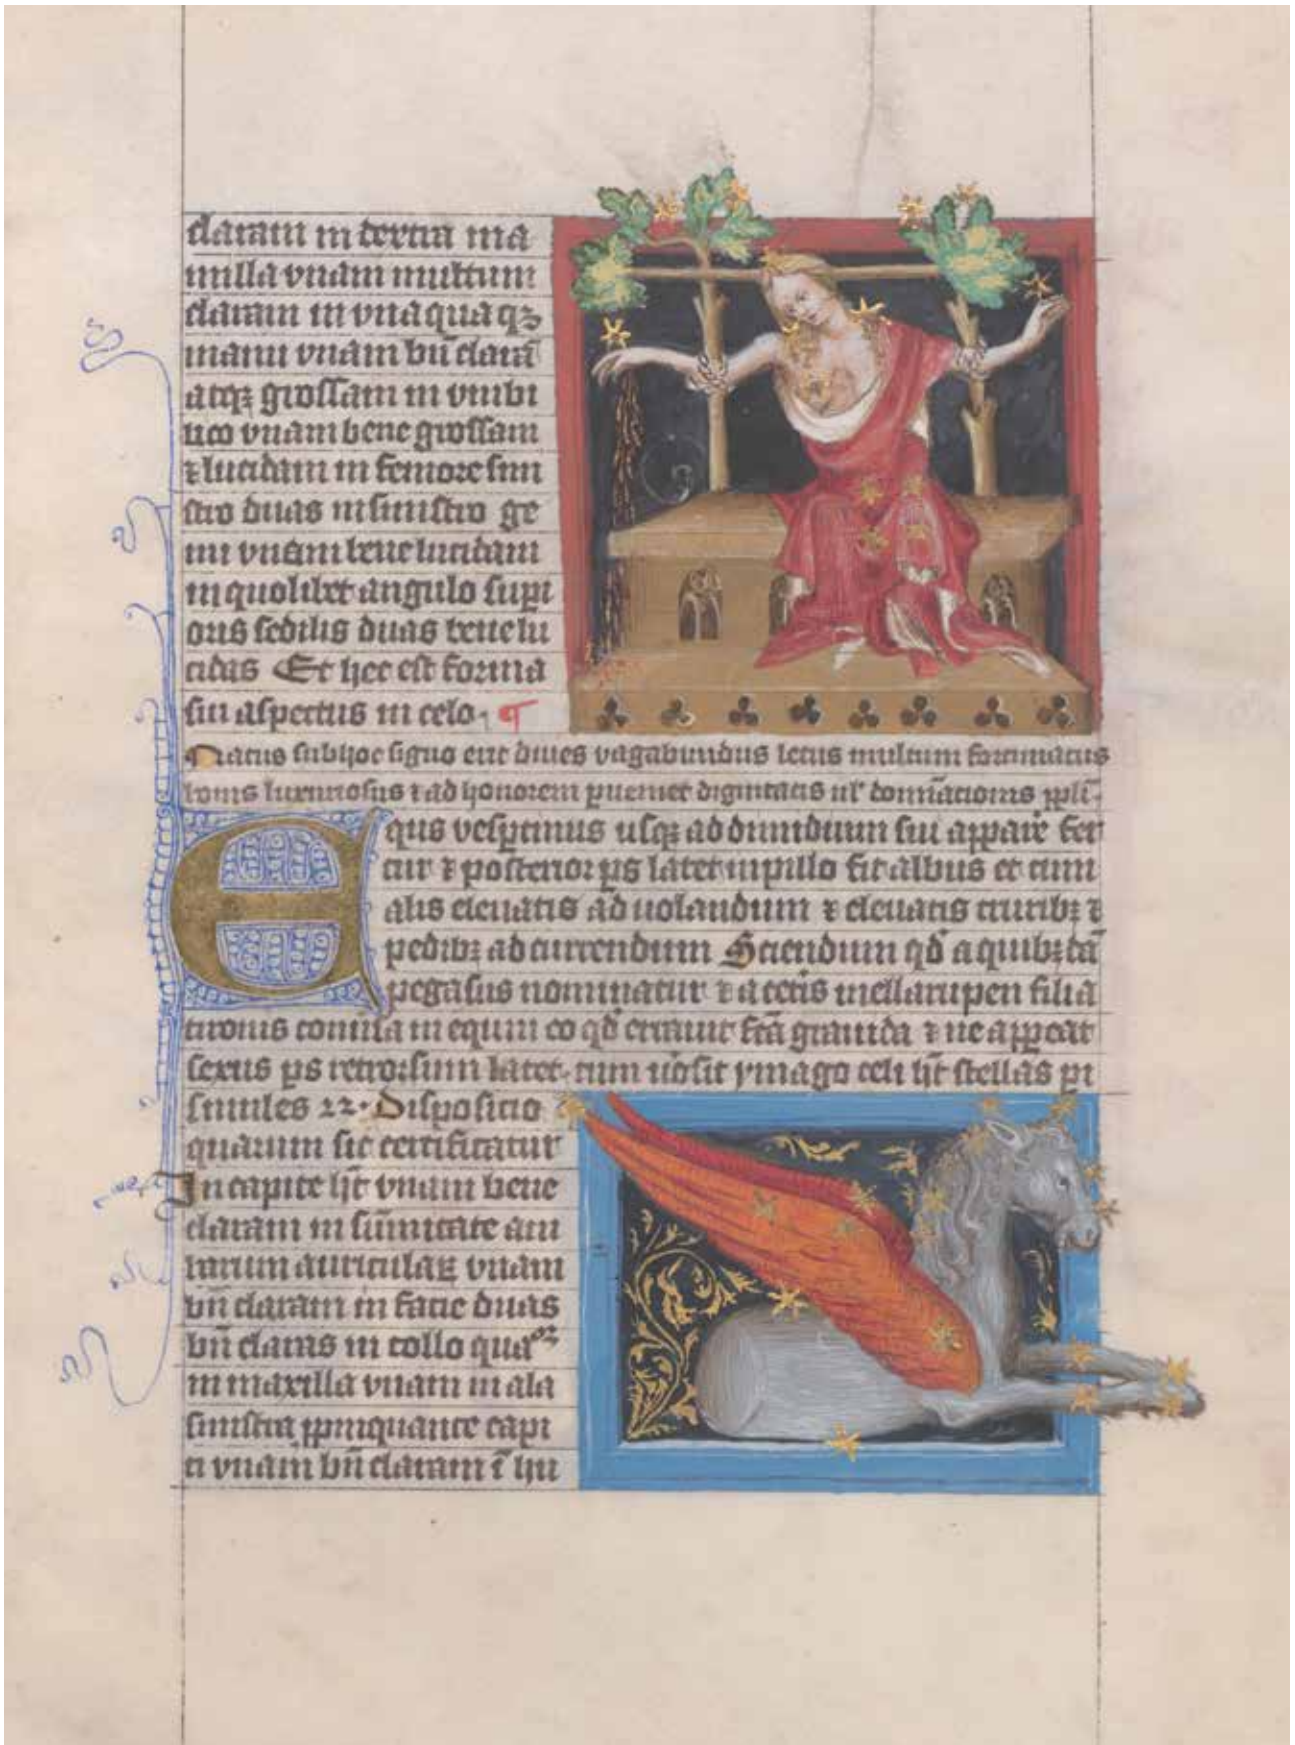 claram in dextra ma
milla vnam multum
claram in vnaquaqꝫ
manu vnam bn̄ clarā
atqꝫ grossam in vmbi
lico vnam bene grossam
⁊ lucidam in femore sini
stro duas in sinistro ge
nu vnam bene lucidam
in quolibet angulo supi
oris sedilis duas bene lu
cidas Et hec est forma
sui aspectus in celo. ¶
Natus sub hoc signo erit diues vagabundus letus multum fortunatus
bonis luxuriosus ⁊ ad honorem pueniet dignitatis ul' domīacionis ppl̄i.
Equs vesptinus usqꝫ ad dimidium sui appaŕe fer
tur ⁊ posterior ps latet in pillo fit albus et cum
alis eleuatis ad uolandum ⁊ eleuatis cruribꝫ ⁊
pedibꝫ ad currendum Sciendum qd̄ a quibꝫdā
pegasus nominatur ⁊ a cetis mellarupen filia
tironis conuersa in equm eo qd̄ errauit fc̄a grauida ⁊ ne appeat
sexus ps retrorsum latet. cum u̇o sit ymago celi hꝫ stellas pi
similes 22. Disposicio
quarum sic certificatur
In capite hꝫ vnam bene
claram in sūmitate am
barum auriculaꝝ vnam
bn̄ claram in facie duas
bn̄ claras in collo quaᵒʳ
in maxilla vnam in ala
sinistra ppinquante capi
ti vnam bn̄ claram ī hu